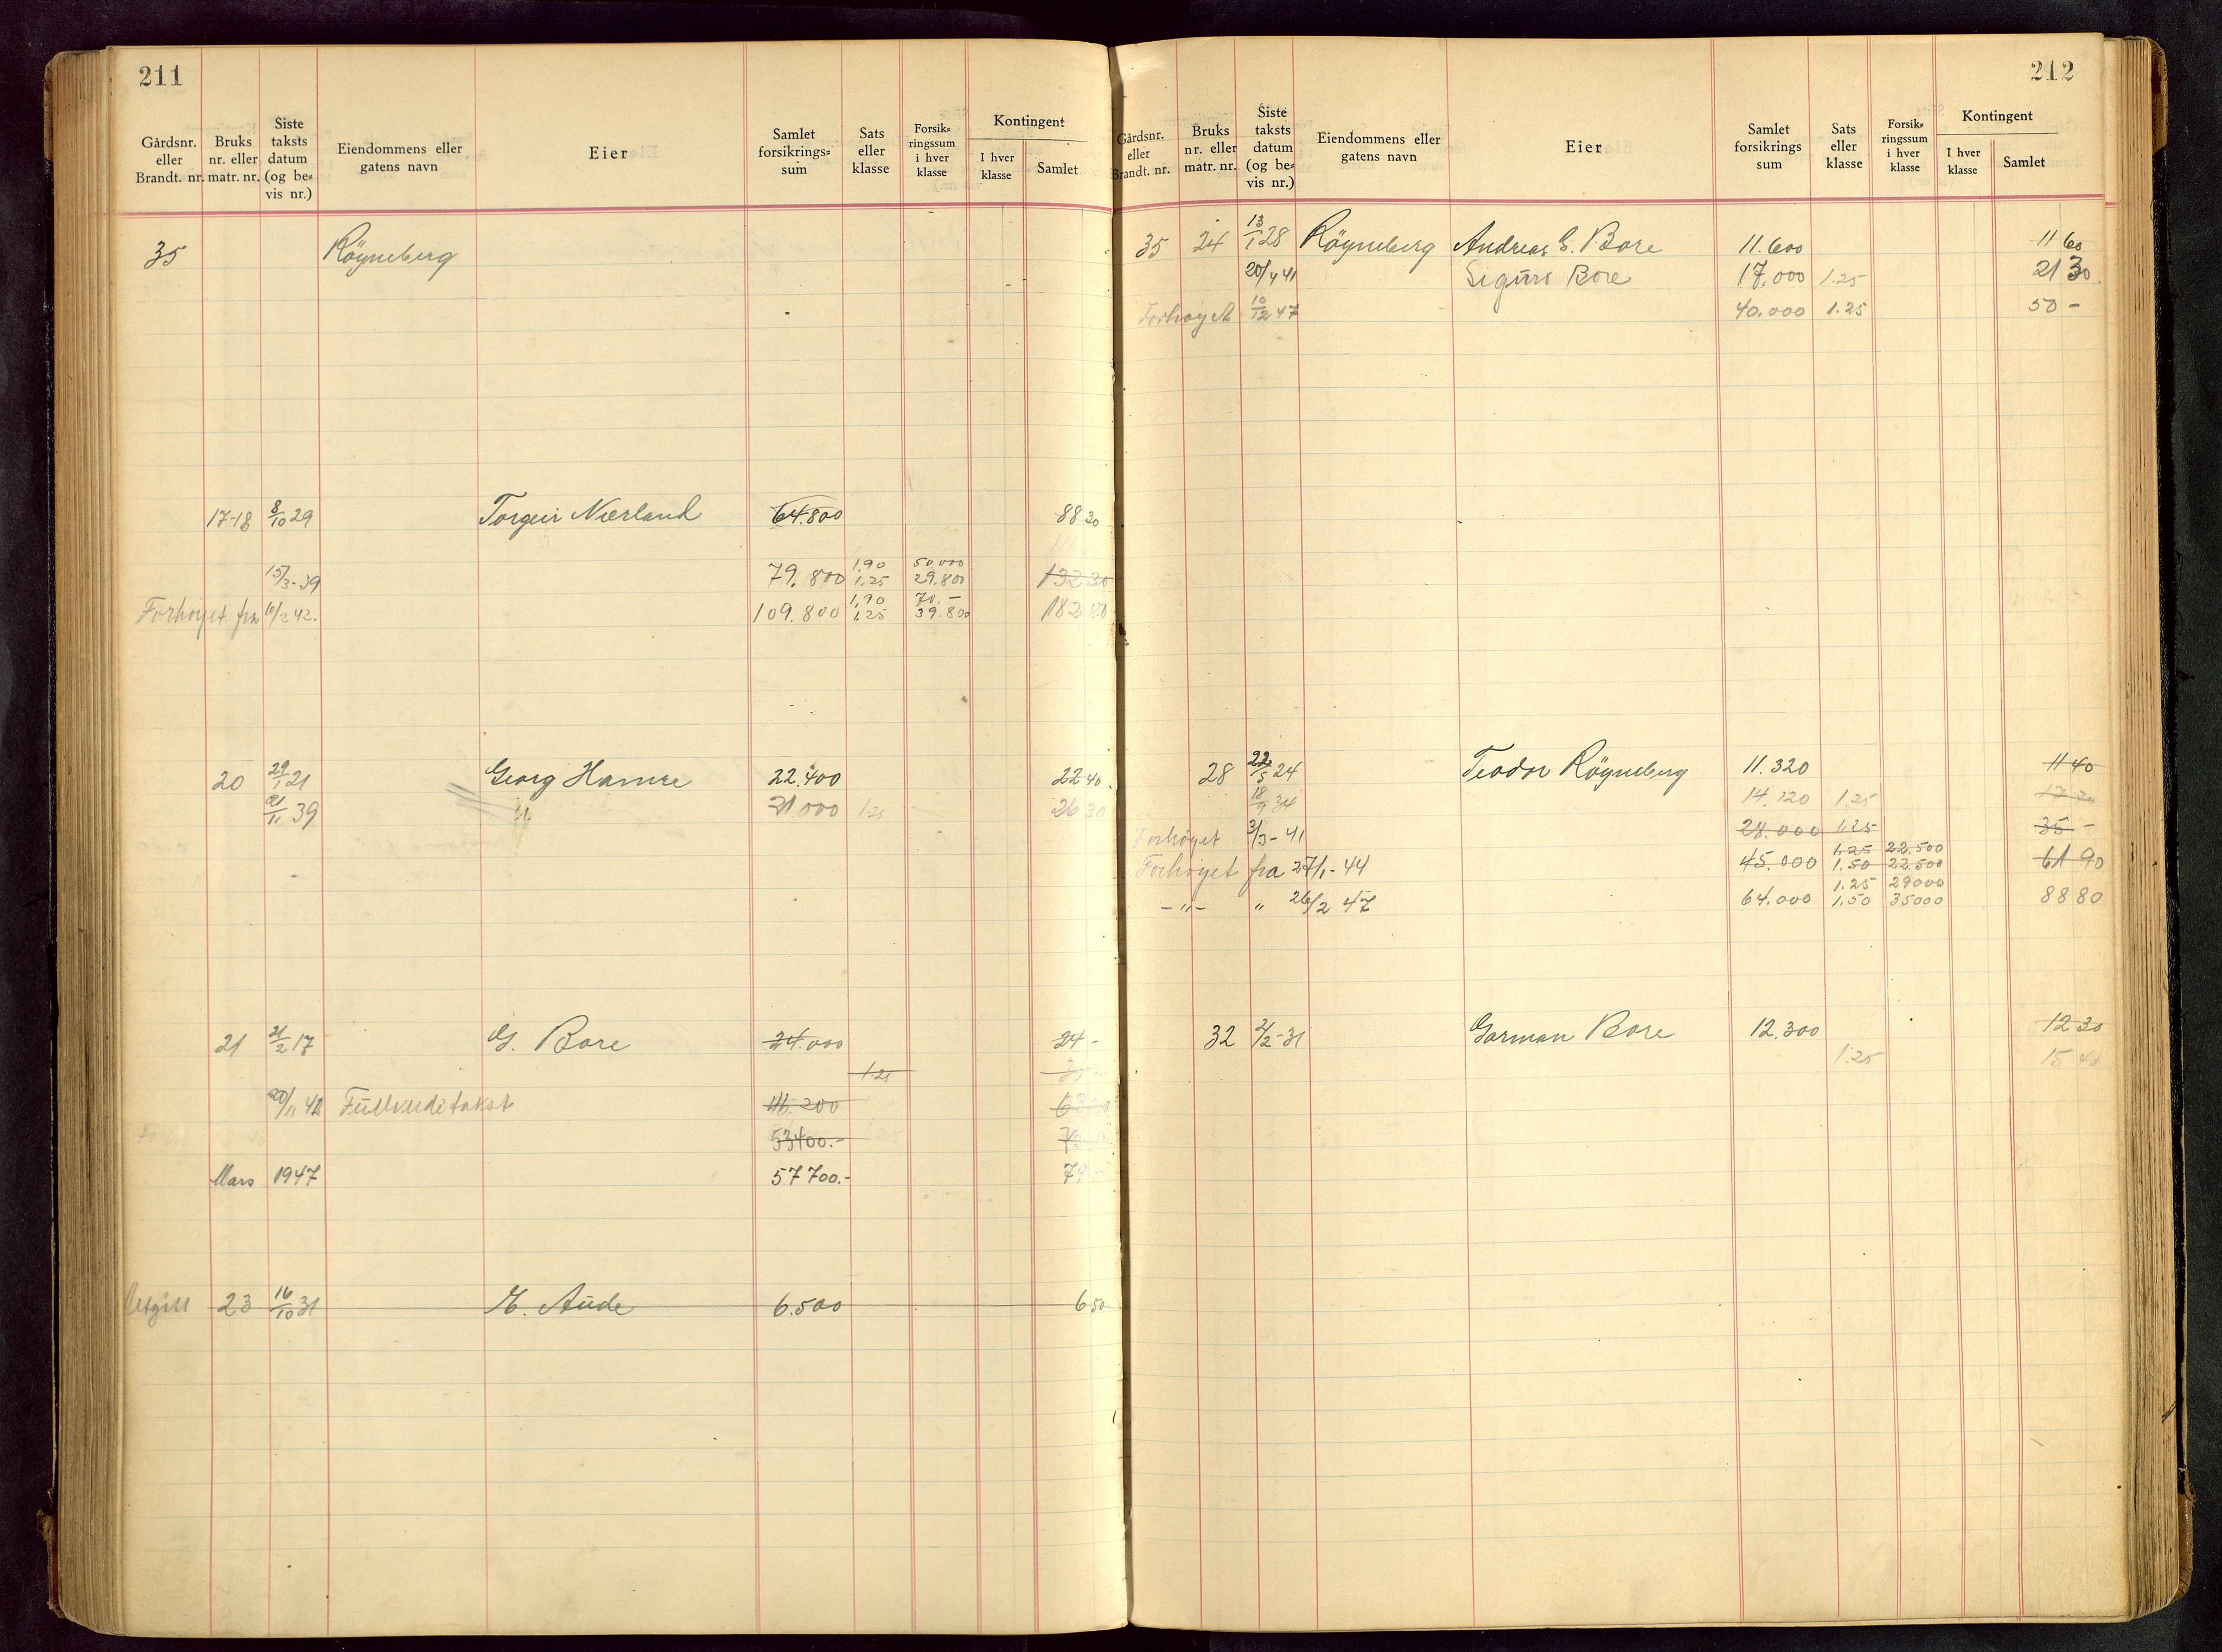 211
Gårdsnr. eller Brandt. nr. Bruks nr. eller matr. nr. Siste taksts datum (og be= vis nr.) Eiendommens eller gatens navn Eier Samlet forsikrings= sum Sats eller klasse Forsik= ringssum i hver klasse Kontingent I hver klasse Samlet
35 Röyneberg
17-18 8/10 29 Torgeir Nærland 64.800 88 30
15/3-39 79.800 1,90 50000 1,25 29.800 132 30
Forhöyet fra 10/2 42. 109.800 1,90 70.- 1,25 39.800 182
20 29/1 21 Georg Hamre 22.400 22 40
21/11 39 " 21000 1.25 26 30
21 21/2 17 G. Bore 24.000 24 -
1.25
20/11 42 Fullverditakst 46 200
53400.-
Mars 1947 57700.- 79 -
Utgått 23 16/10 31 E. Aude 6.500 6 50
212
Gårdsnr. eller Brandt. nr. Bruks nr. eller matr. nr. Siste taksts datum (og be= vis nr.) Eiendommens eller gatens navn Eier Samlet forsikrings sum Sats eller klasse Forsik= ringssum i hver klasse Kontingent I hver klasse Samlet
35 24 13/1 28 Röyneberg Andreas G. Bore 11.600 11 60
20/4 41 Sigurd Bore 17.000 1.25 21 30
Forhöyet 10/12 47 40.000 1.25 50 -
28 22/5 24 Teodor Röyneberg 11.320 11 40
18/9 34 14.120 1.25 17 70
Forhöyet 3/3-41 28.000 1,25 35 -
Forhöyet fra 27/1-44 45.000 1.25 22.500 1.50 22.500 61 90
-"- " 26/2 47 64.000 1.25 29000 1.50 35000 88 80
32 2/2-31 Garman Bore 12,300 12 30
1.25 15 40